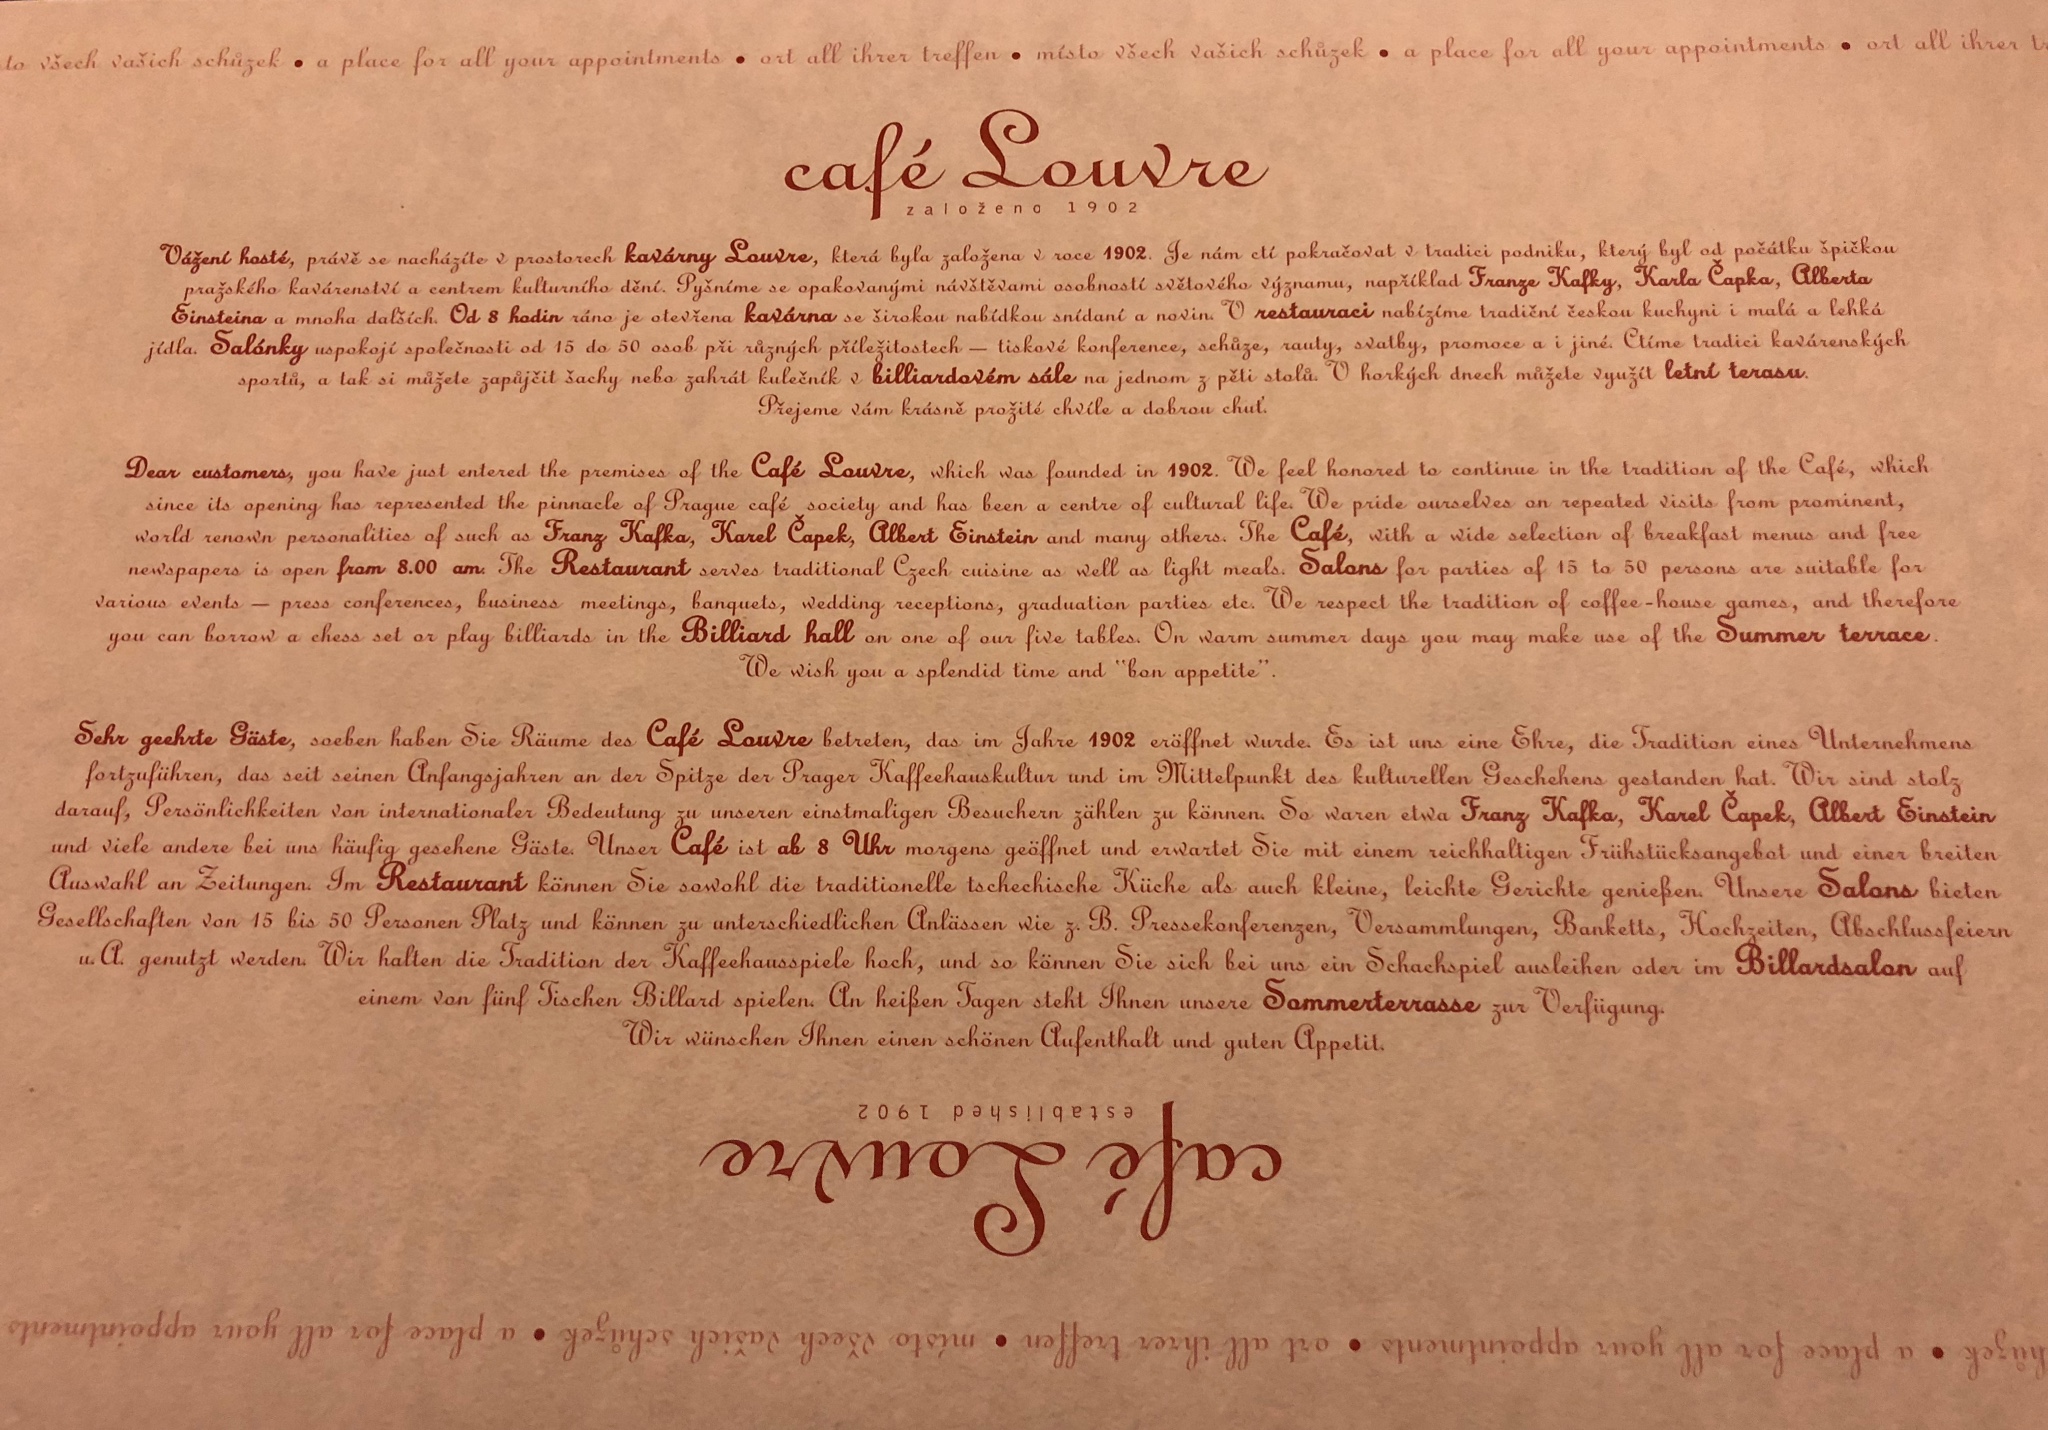 sto všech vašich schůzek • a place for all your appointments • ort all ihrer treffen • místo všech vašich schůzek • a place for all your appointments • ort all ihrer
café Louvre
založeno 1902
Vážení hosté, právě se nacházíte v prostorech kavárny Louvre, která byla založena v roce 1902. Je nám ctí pokračovat v tradici podniku, který byl od počátku špičkou
pražského kavárenství a centrem kulturního dění. Pyšníme se opakovanými návštěvami osobností světového významu, například Franze Kafky, Karla Čapka, Alberta
Einsteina a mnoha dalších. Od 8 hodin ráno je otevřena kavárna se širokou nabídkou snídaní a novin. V restauraci nabízíme tradiční českou kuchyni i malá a lehká
jídla. Salónky uspokojí společnosti od 15 do 50 osob při různých příležitostech – tiskové konference, schůze, rauty, svatby, promoce a i jiné. Ctíme tradici kavárenských
sportů, a tak si můžete zapůjčit šachy nebo zahrát kulečník v billiardovém sále na jednom z pěti stolů. V horkých dnech můžete využít letní terasu.
Přejeme vám krásně prožité chvíle a dobrou chuť.
Dear customers, you have just entered the premises of the Café Louvre, which was founded in 1902. We feel honored to continue in the tradition of the Café, which
since its opening has represented the pinnacle of Prague café society and has been a centre of cultural life. We pride ourselves on repeated visits from prominent,
world renown personalities of such as Franz Kafka, Karel Čapek, Albert Einstein and many others. The Café, with a wide selection of breakfast menus and free
newspapers is open from 8.00 am. The Restaurant serves traditional Czech cuisine as well as light meals. Salons for parties of 15 to 50 persons are suitable for
various events – press conferences, business meetings, banquets, wedding receptions, graduation parties etc. We respect the tradition of coffee-house games, and therefore
you can borrow a chess set or play billiards in the Billiard hall on one of our five tables. On warm summer days you may make use of the Summer terrace.
We wish you a splendid time and "bon appetite".
Sehr geehrte Gäste, soeben haben Sie Räume des Café Louvre betreten, das im Jahre 1902 eröffnet wurde. Es ist uns eine Ehre, die Tradition eines Unternehmens
fortzuführen, das seit seinen Anfangsjahren an der Spitze der Prager Kaffeehauskultur und im Mittelpunkt des kulturellen Geschehens gestanden hat. Wir sind stolz
darauf, Persönlichkeiten von internationaler Bedeutung zu unseren einstmaligen Besuchern zählen zu können. So waren etwa Franz Kafka, Karel Čapek, Albert Einstein
und viele andere bei uns häufig gesehene Gäste. Unser Café ist ab 8 Uhr morgens geöffnet und erwartet Sie mit einem reichhaltigen Frühstücksangebot und einer breiten
Auswahl an Zeitungen. Im Restaurant können Sie sowohl die traditionelle tschechische Küche als auch kleine, leichte Gerichte genießen. Unsere Salons bieten
Gesellschaften von 15 bis 50 Personen Platz und können zu unterschiedlichen Anlässen wie z. B. Pressekonferenzen, Versammlungen, Banketts, Hochzeiten, Abschlussfeiern
u. A. genutzt werden. Wir halten die Tradition der Kaffeehausspiele hoch, und so können Sie sich bei uns ein Schachspiel ausleihen oder im Billardsalon auf
einem von fünf Tischen Billard spielen. An heißen Tagen steht Ihnen unsere Sommerterrasse zur Verfügung.
Wir wünschen Ihnen einen schönen Aufenthalt und guten Appetit.
café Louvre
established 1902
hůzek • a place for all your appointments • ort all ihrer treffen • místo všech vašich schůzek • a place for all your appointments